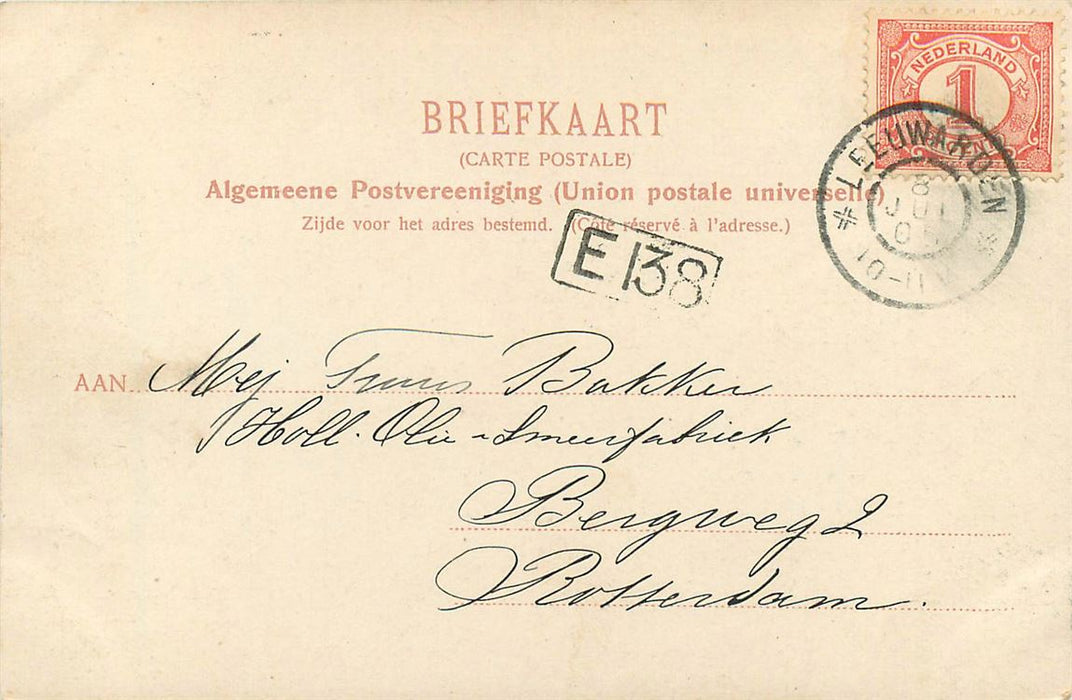 NEDERLAND
1
BRIEFKAART
(CARTE POSTALE)
Algemeene Postvereeniging (Union postale universelle)
Zijde voor het adres bestemd. (Côté réservé à l'adresse.)
LEEUWARDEN
8
10-11V
E 138
AAN Mej Truus Bakker
Holl. Olie - Smeerfabriek
Bergweg 2
Rotterdam.